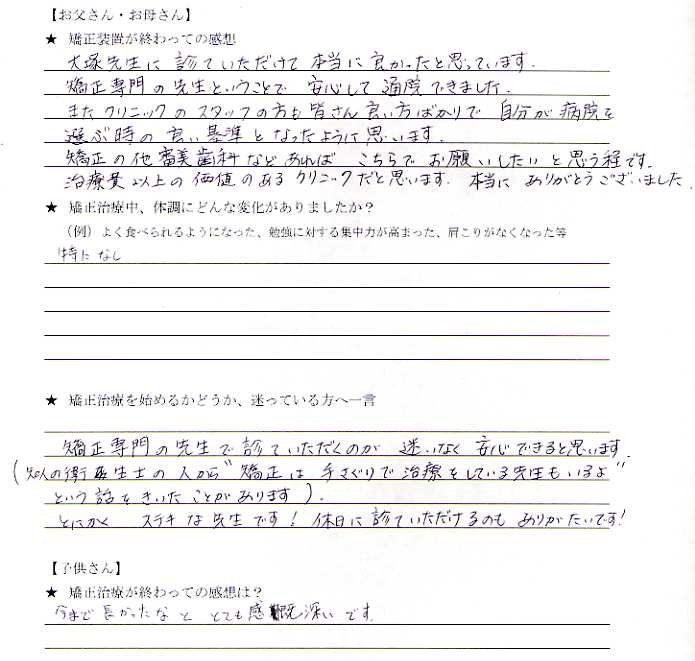 【お父さん・お母さん】
★ 矯正装置が終わっての感想
大塚先生に診ていただけて本当に良かったと思っています。
矯正専門の先生ということで 安心して通院できました。
またクリニックのスタッフの方も皆さん良い方ばかりで 自分が病院を
選ぶ時の良い基準となったように思います。
矯正の他審美歯科などあれば こちらでお願いしたいと思う程です。
治療費以上の価値のあるクリニックだと思います。本当にありがとうございました。
★ 矯正治療中、体調にどんな変化がありましたか?
(例)よく食べられるようになった、勉強に対する集中力が高まった、肩こりがなくなった等
特になし
★ 矯正治療を始めるかどうか、迷っている方へ一言
矯正専門の先生で診ていただくのが 迷いなく安心できると思います。
(知人の衛生士の人から"矯正は手さぐりで治療をしている先生もいるよ"
という話をきいたことがあります)。
とにかく ステキな先生です!休日に診ていただけるのもありがたいです!
【子供さん】
★ 矯正治療が終わっての感想は?
今まで長かったなととても感慨深いです。